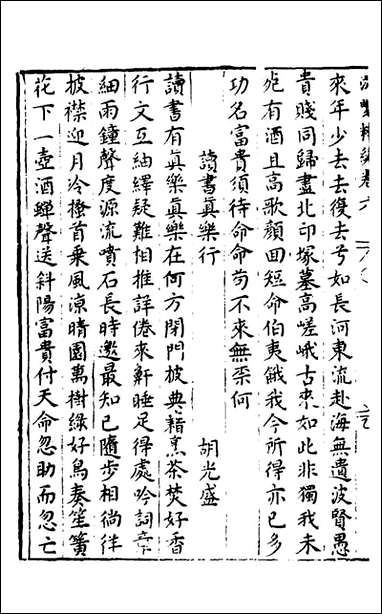 來年少去去復去兮如長河東流赴海無遺波賢愚
貴賤同歸盡北印塚墓高嵯峨古來如此非獨我未
死有酒且高歌顔囬短命伯夷餓我今所得亦已多
功名富貴須待命命苟不來無柰何
讀書真樂行
胡光盛
讀書有真樂真樂在何方閉門披典籍烹茶焚好香
行文互紬繹疑難相推詳倦來軒睡足得處吟詞章
細雨鐘聲度源流漬石長時邀最知已隨步相徜徉
披襟迎月冷搔首乗風凉晴園萬樹綠好鳥奏笙簧
花下一壺酒蟬聲送斜陽富貴付天命忽助而忽亡